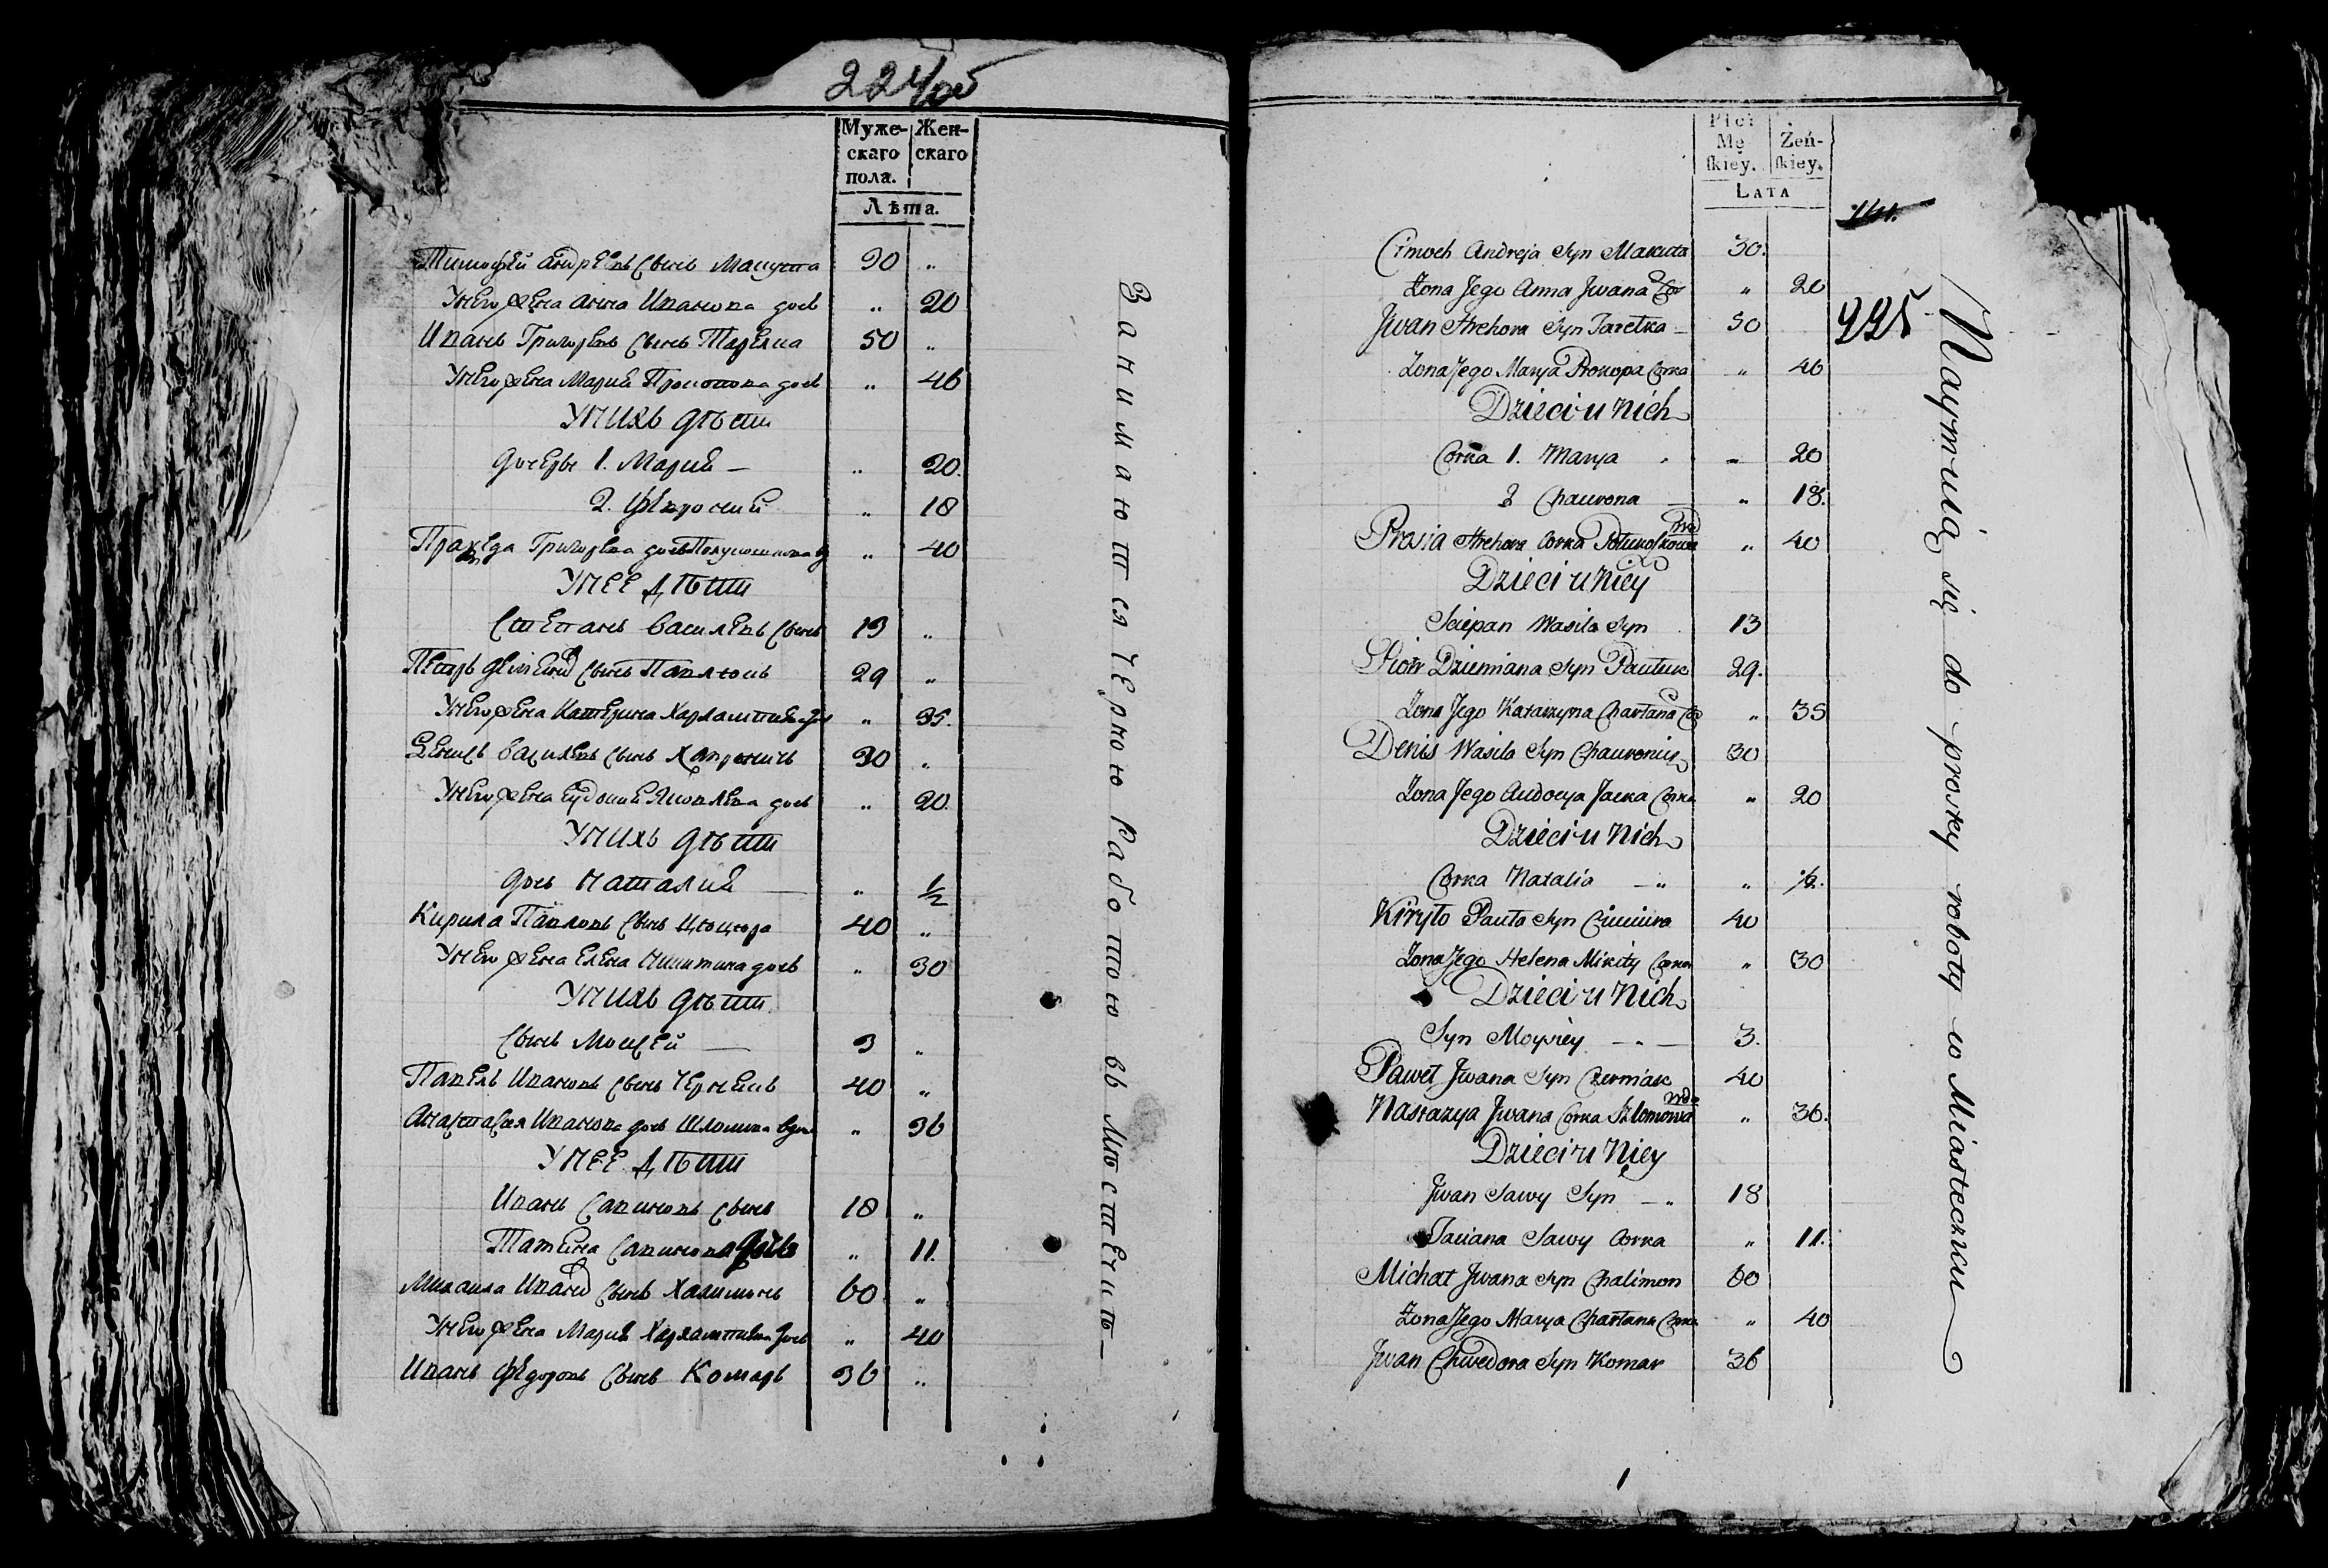 224/об
Муже- Жен-
скаго скаго
пола.
Лѣта.
Тимофей Андреевъ сынъ Макута 30 „
У него жена Анна Иванова дочь „ 20
Иванъ Григорьевъ сынъ Тарелка 50 „
У него жена Мария Прокопова дочь „ 46
У нихъ дѣти
Дочери 1. Мария — „ 20.
2. Феврония „ 18
Григорьева дочь „ 40
У нее дѣти
Степанъ Васильевъ сынъ 13 „
Петръ сынъ Павлюкъ 29 „
У него жена Катерина „ 35.
Денисъ Васильевъ сынъ Хавроничъ 30 „
У него жена Евдокия Яковлева дочь „ 20.
У нихъ дѣти
Дочь Наталия — „ 1/2
Кирила Павловъ сынъ Цюцюра 40 „
У него жена Елена Никитина дочь „ 30
У нихъ дѣти
Сынъ Мойсей — 3 „
Павелъ Ивановъ сынъ Чернякъ 40 „
Анастасия Иванова дочь Шломина вдо „ 36
У нее дѣти
Иванъ Савиновъ сынъ 18 „
Татьяна Савинова дочь „ 11.
Михаила Иванов сынъ Халимонъ 60 „
У него жена Мария дочь „ 40
Иванъ Федоровъ сынъ Комаръ 36 „
Занимаются черною работою въ мѣстечкѣ—
Płci
Mę- Żeń-
ſkiey. ſkiey.
LATA
225
Cimoch Andreja Syn Makuta 30.
Żona Jego Anna Jwana Cor „ 20
Jwan Hrehora Syn Taretka — 50
Żona Jego Marya Prokopa Corka „ 46
Dzieci u Nich
Corka 1. Marya „ 20
2 Chawrona — „ 18.
Prosia Hrehora Corka wd „ 40
Dzieci u Niey
Sciepan Wasila Syn 13
Piotr Dziemiana Syn Pauluk 29.
Żona Jego Katarzyna Charłana Cor „ 35
Denis Wasila Syn Chauronicz 30
Żona Jego Audocya Jacka Corka „ 20
Dzieci u Nich
Corka Natalia — „ „ 1/2.
Kiryło Pauła Syn Ciuciura 40
Żona Jego Helena Mikity Corka „ 30
Dzieci u Nich
Syn Moysiey — „ — 3.
Paweł Jwana Syn Czerniak 40
Nastazya Jwana Corka Szlomowa wda „ 36.
Dzieci u Niey
Jwan Sawy Syn — „ 18
Taciana Sawy Corka „ 11.
Michał Jwana Syn Chalimon 60
Żona Jego Marya Charłana Corka „ 40
Jwan Chwedora Syn Komar 36
Naymuią się do prostey roboty w Miasteczku